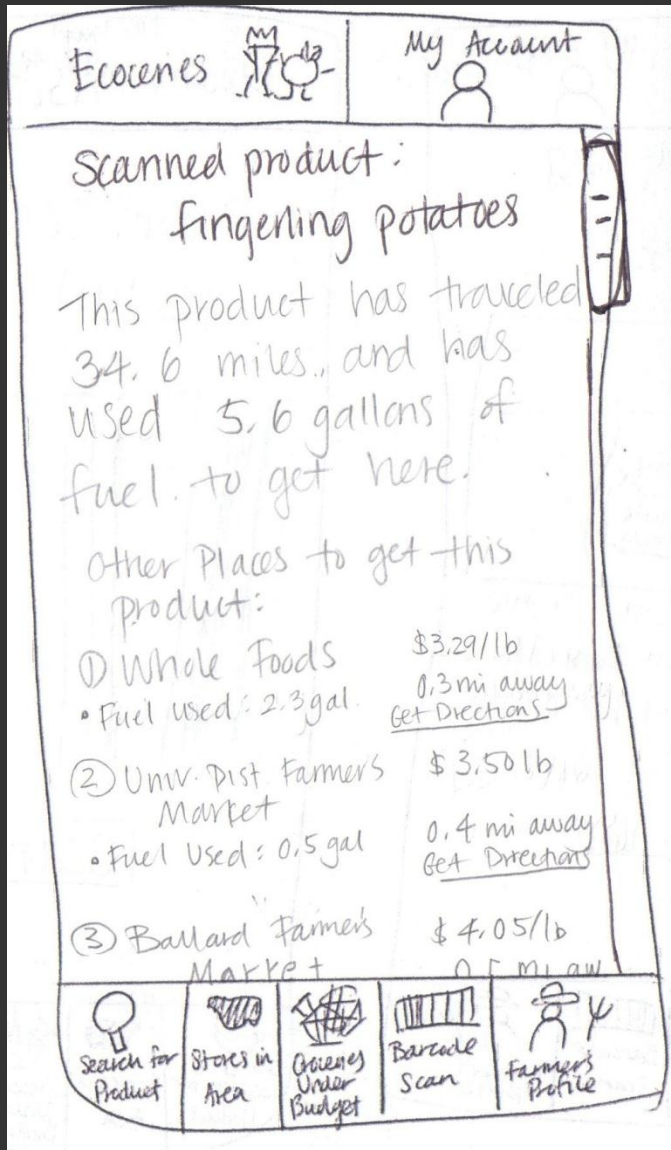 Ecoceries
My Account
Scanned product:
fingerling potatoes
This product has traveled
34.6 miles, and has
used 5.6 gallons of
fuel to get here.
Other Places to get this
product:
① Whole Foods $3.29/lb
• Fuel used: 2.3 gal. 0.3 mi away
Get Directions
② Univ. Dist. Farmers $3.50 lb
Market
• Fuel Used: 0.5 gal 0.4 mi away
Get Directions
③ Ballard Farmers $4.05/lb
Market
Search for Product
Stores in Area
Groceries Under Budget
Barcode Scan
Farmer's Profile